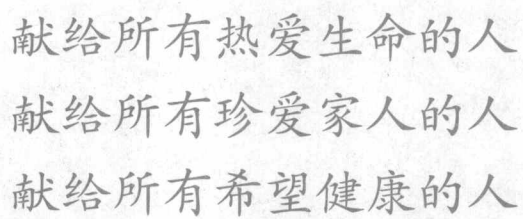 献给所有热爱生命的人
献给所有珍爱家人的人
献给所有希望健康的人